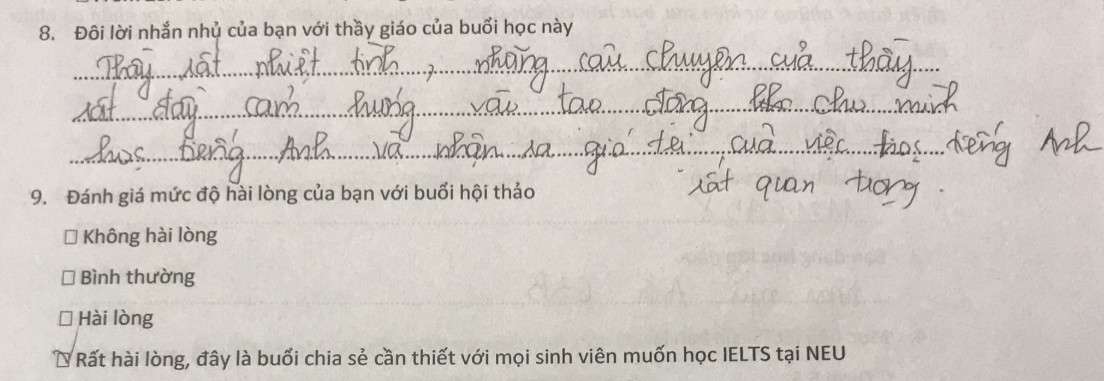 8. Đôi lời nhắn nhủ của bạn với thầy giáo của buổi học này
Thầy rất nhiệt tình, những câu chuyện của thầy
rất đầy cảm hứng và tạo động lực cho mình
học tiếng Anh và nhận ra giá trị của việc học tiếng Anh
rất quan trọng.
9. Đánh giá mức độ hài lòng của bạn với buổi hội thảo
Không hài lòng
Bình thường
Hài lòng
Rất hài lòng, đây là buổi chia sẻ cần thiết với mọi sinh viên muốn học IELTS tại NEU